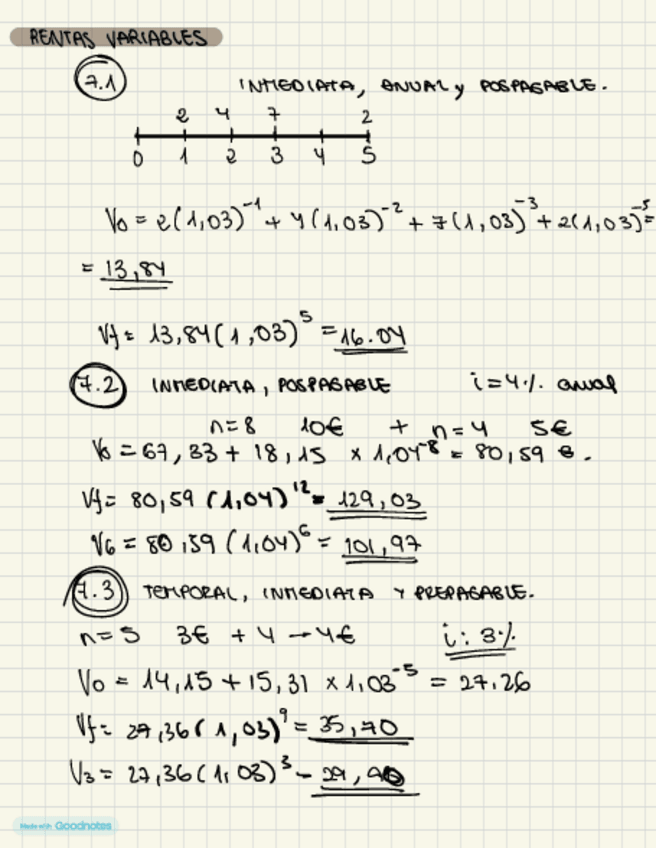 RENTAS VARIABLES
7.1 INMEDIATA, ANUAL y POSPAGABLE.
2 4 7 2
0 1 2 3 4 5
V₀ = 2(1,03)⁻¹ + 4(1,03)⁻² + 7(1,03)⁻³ + 2(1,03)⁻⁵ =
= 13,84
Vf = 13,84(1,03)⁵ = 16.04
7.2 INMEDIATA, POSPAGABLE i=4% anual
n=8 10€ + n=4 5€
V₀ = 67,33 + 18,15 × 1,04⁻⁸ = 80,59 €.
Vf = 80,59 (1,04)¹² = 129,03
V6 = 80,59 (1,04)⁶ = 101,97
7.3 TEMPORAL, INMEDIATA Y PREPAGABLE.
n=5 3€ + 4 → 4€ i: 3%
V₀ = 14,15 + 15,31 × 1,03⁻⁵ = 27,26
Vf = 27,36(1,03)⁹ = 35,70
V3 = 27,36(1,03)³ -
Made with Goodnotes